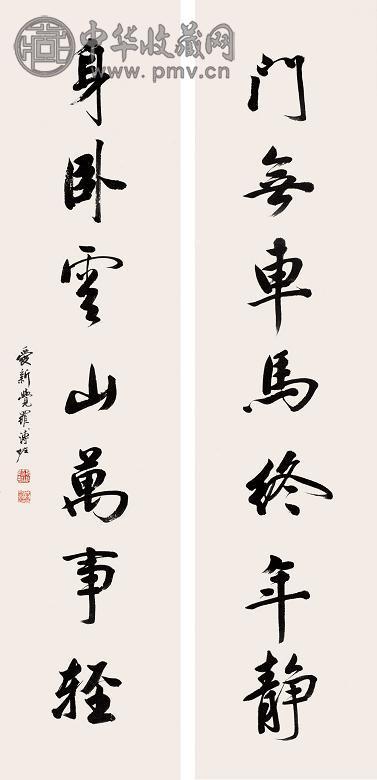 中华收藏网
www.pmv.cn
門無車馬終年静
身卧雲山萬事輕
愛新覺羅溥佐